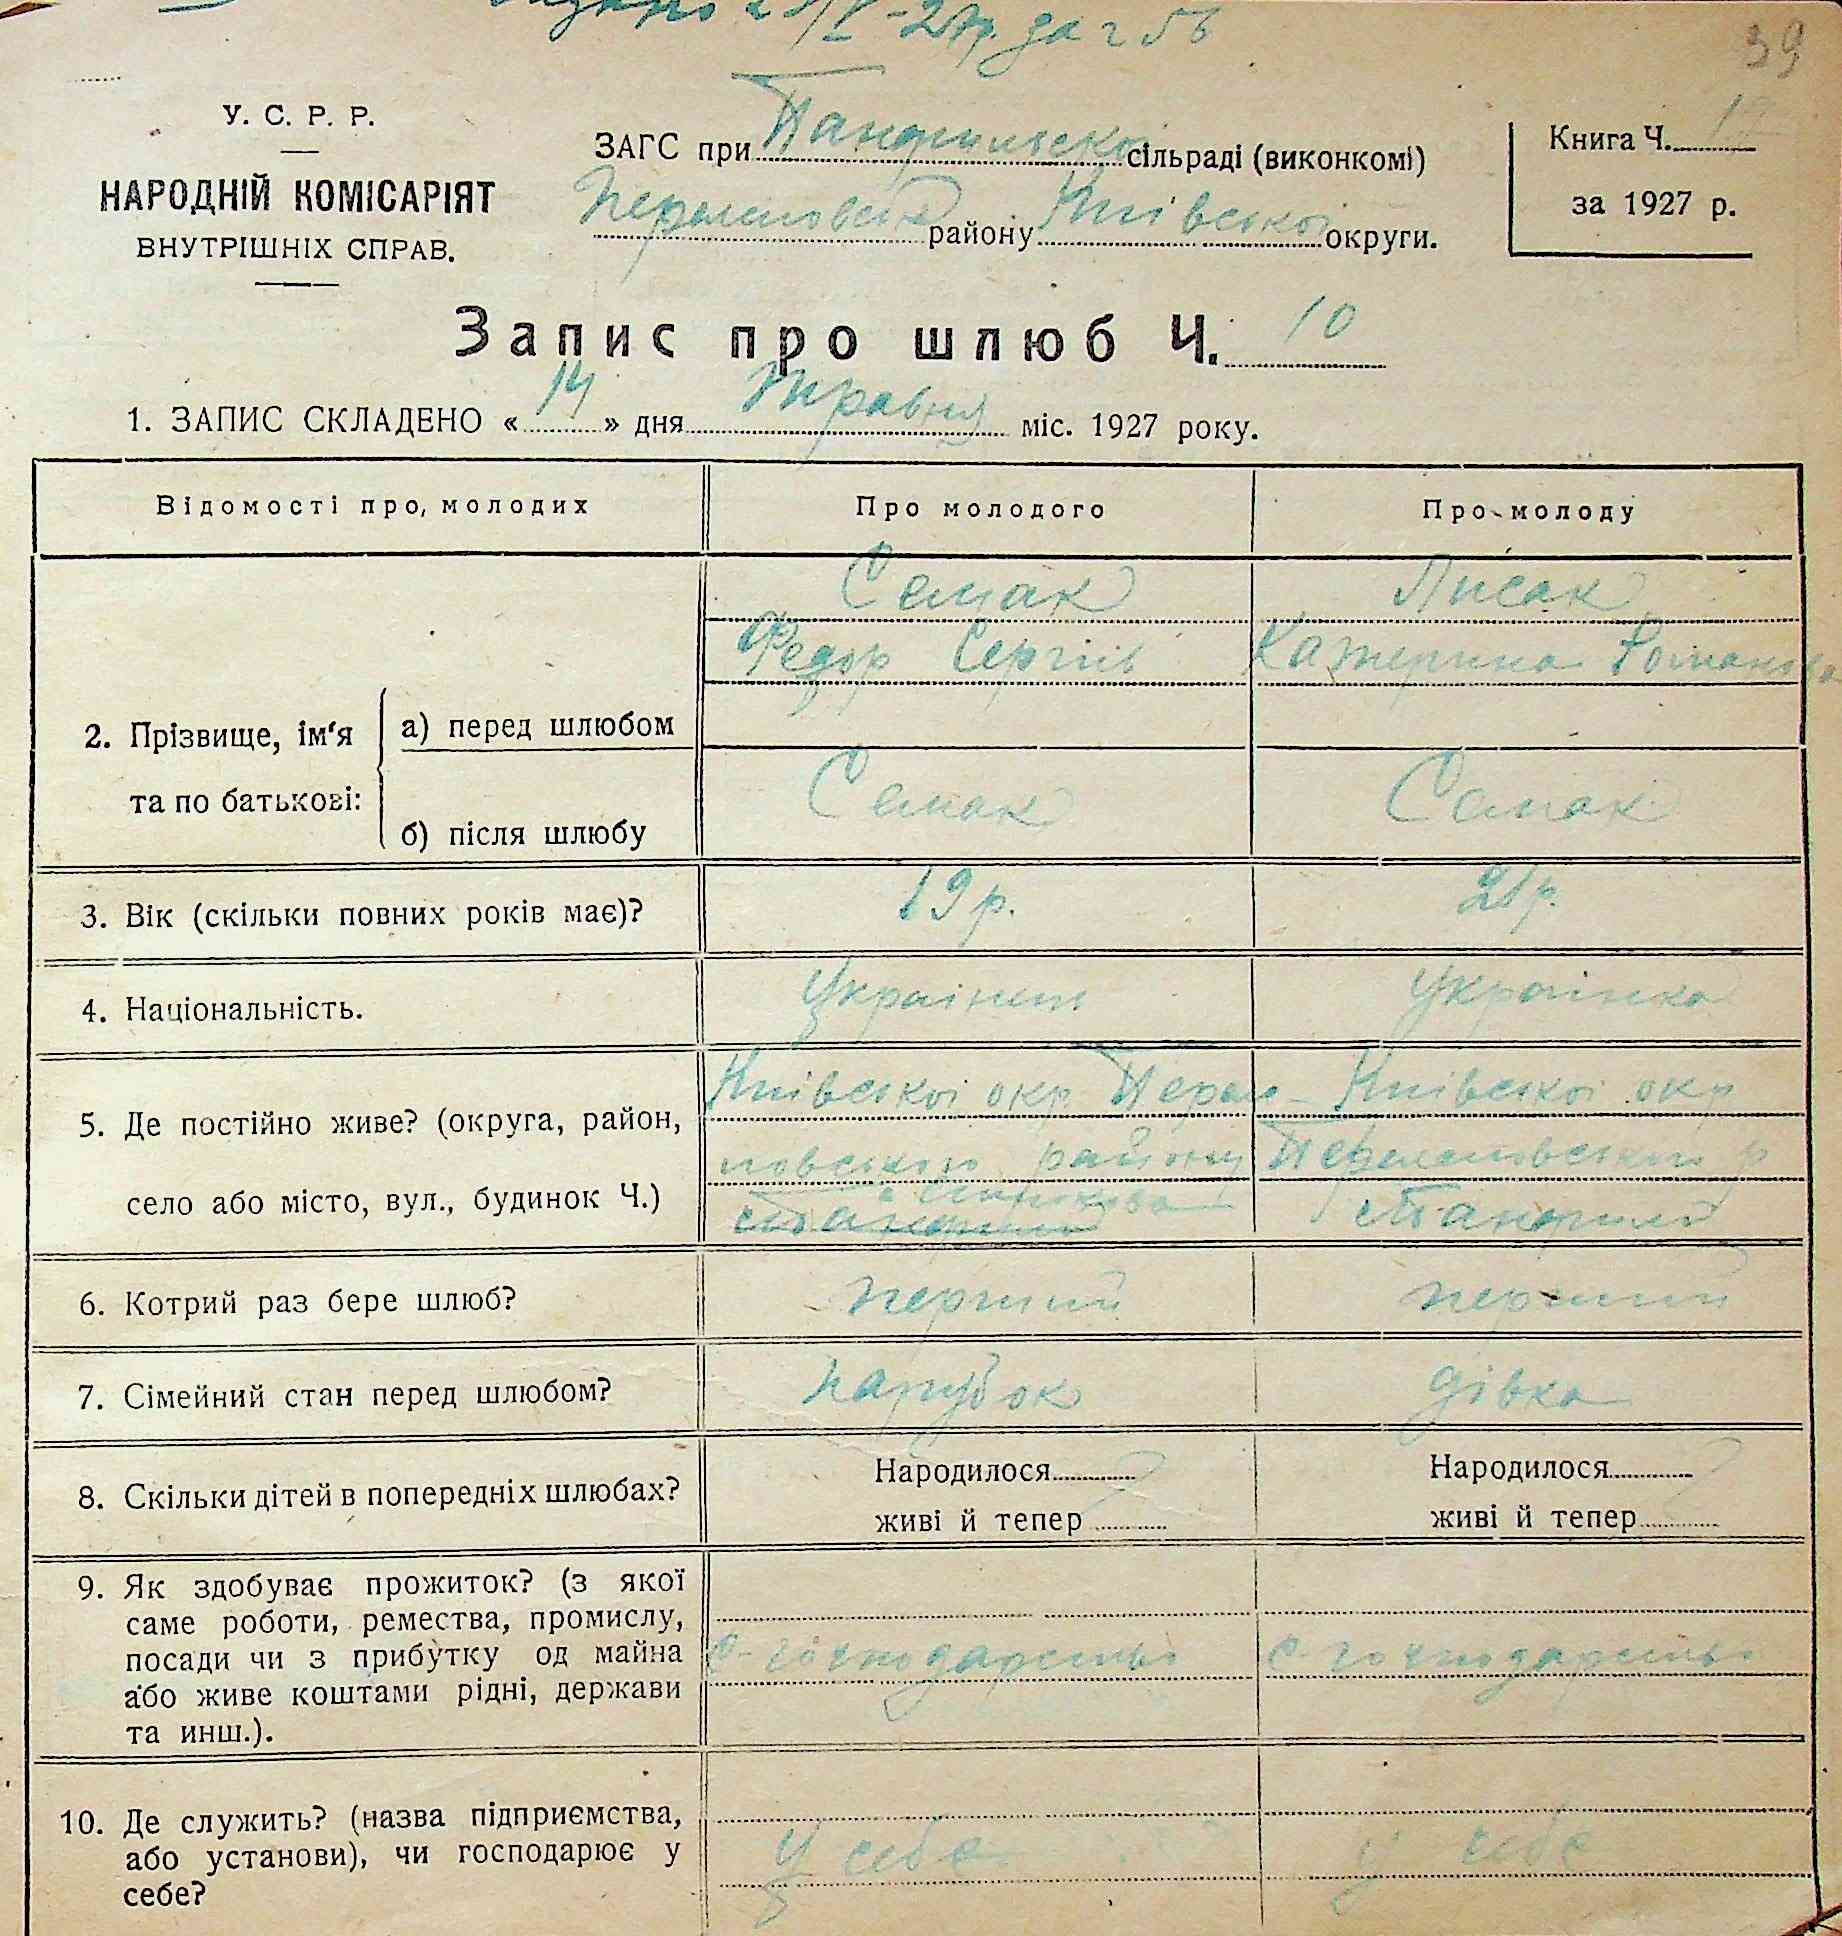 39
У. С. Р. Р.
НАРОДНІЙ КОМІСАРІЯТ
ВНУТРІШНІХ СПРАВ.
ЗАГС при Панфильской сільраді (виконкомі)
району Київської округи.
Книга Ч.
за 1927 р.
Запис про шлюб Ч. 10
1. ЗАПИС СКЛАДЕНО « 14 » дня Травня міс. 1927 року.
Відомості про молодих Про молодого Про молоду
Семак Лисак
Федор Сергіїв Катерина Романова
2. Прізвище, ім'я та по батькові:
а) перед шлюбом
б) після шлюбу
Семак Семак
3. Вік (скільки повних років має)? 19 р. 21 р.
4. Національність. Українец Українка
5. Де постійно живе? (округа, район,
село або місто, вул., будинок Ч.)
Київської окр. Київської окр
району
с Панфили с Панфили
6. Котрий раз бере шлюб? перший перший
7. Сімейний стан перед шлюбом? парубок дівка
8. Скільки дітей в попередніх шлюбах?
Народилося Народилося
живі й тепер живі й тепер
9. Як здобуває прожиток? (з якої
саме роботи, ремества, промислу,
посади чи з прибутку од майна
або живе коштами рідні, держави
та инш.).
с-господарство с-господарство
10. Де служить? (назва підприємства,
або установи), чи господарює у
себе?
У себе у себе